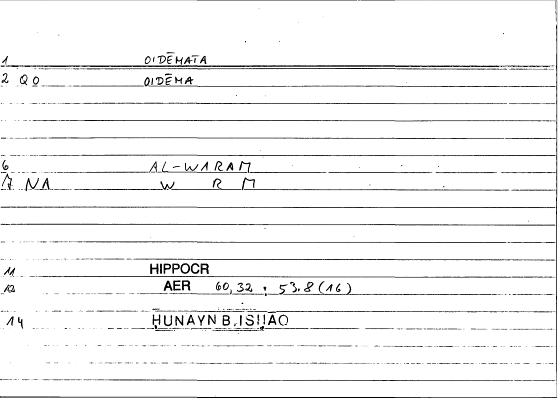 1 OIDĒMATA
2 QO OIDĒMA
6 AL-WARAM
7 NA W R M
11 HIPPOCR
12 AER 60,32 , 53.8 (16)
14 ḤUNAYN B. ISḤĀQ